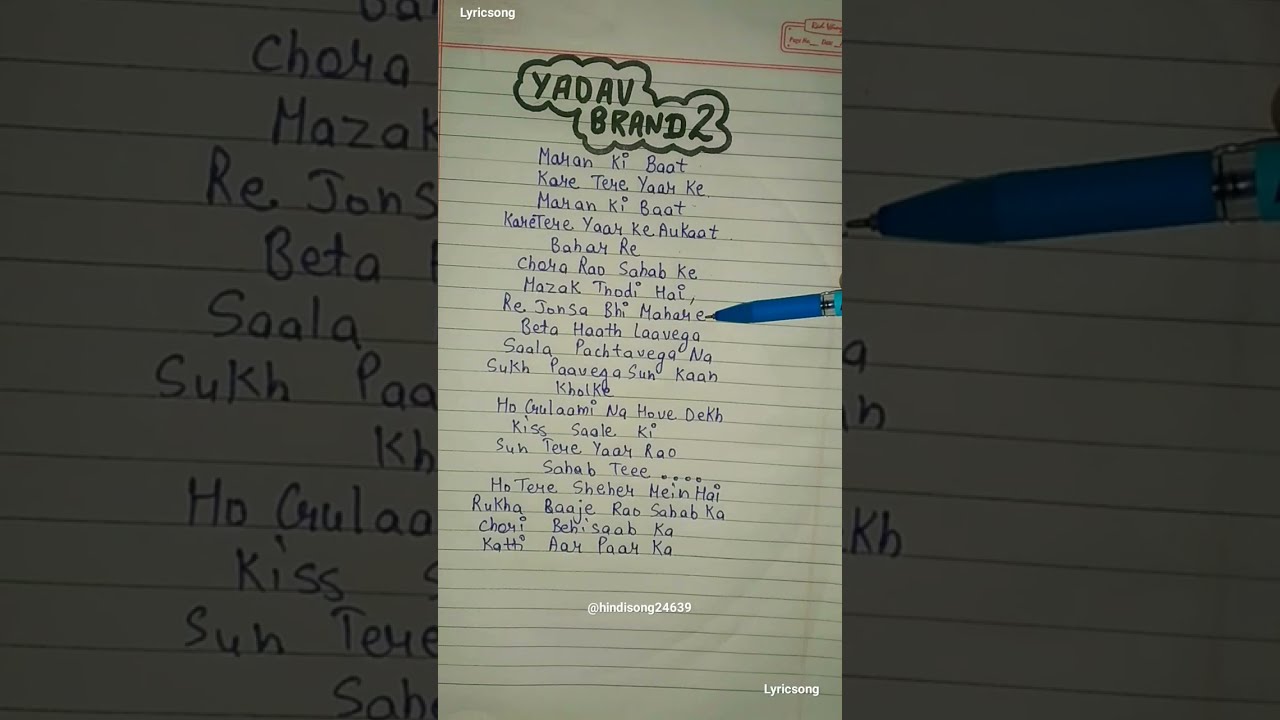 Lyricsong
YADAV
BRAND 2
Maran Ki Baat
Kare Tere Yaar Ke
Maran Ki Baat
Kare Tere Yaar Ke Aukaat
Bahar Re
Chora Rao Sahab Ke
Mazak Thodi Hai,
Re Jonsa Bhi Mahare
Beta Haath Laavega
Saala Pachtavega Na
Sukh Paavega Sun Kaan
Kholke
Ho Gulaami Na Hove Dekh
Kiss Saale Ki
Sun Tere Yaar Rao
Sahab Teee ....
Ho Tere Sheher Mein Hai
Rukha Baaje Rao Sahab Ka
Chori Behisaab Ka
Katti Aar Paar Ka
@hindisong24639
Lyricsong